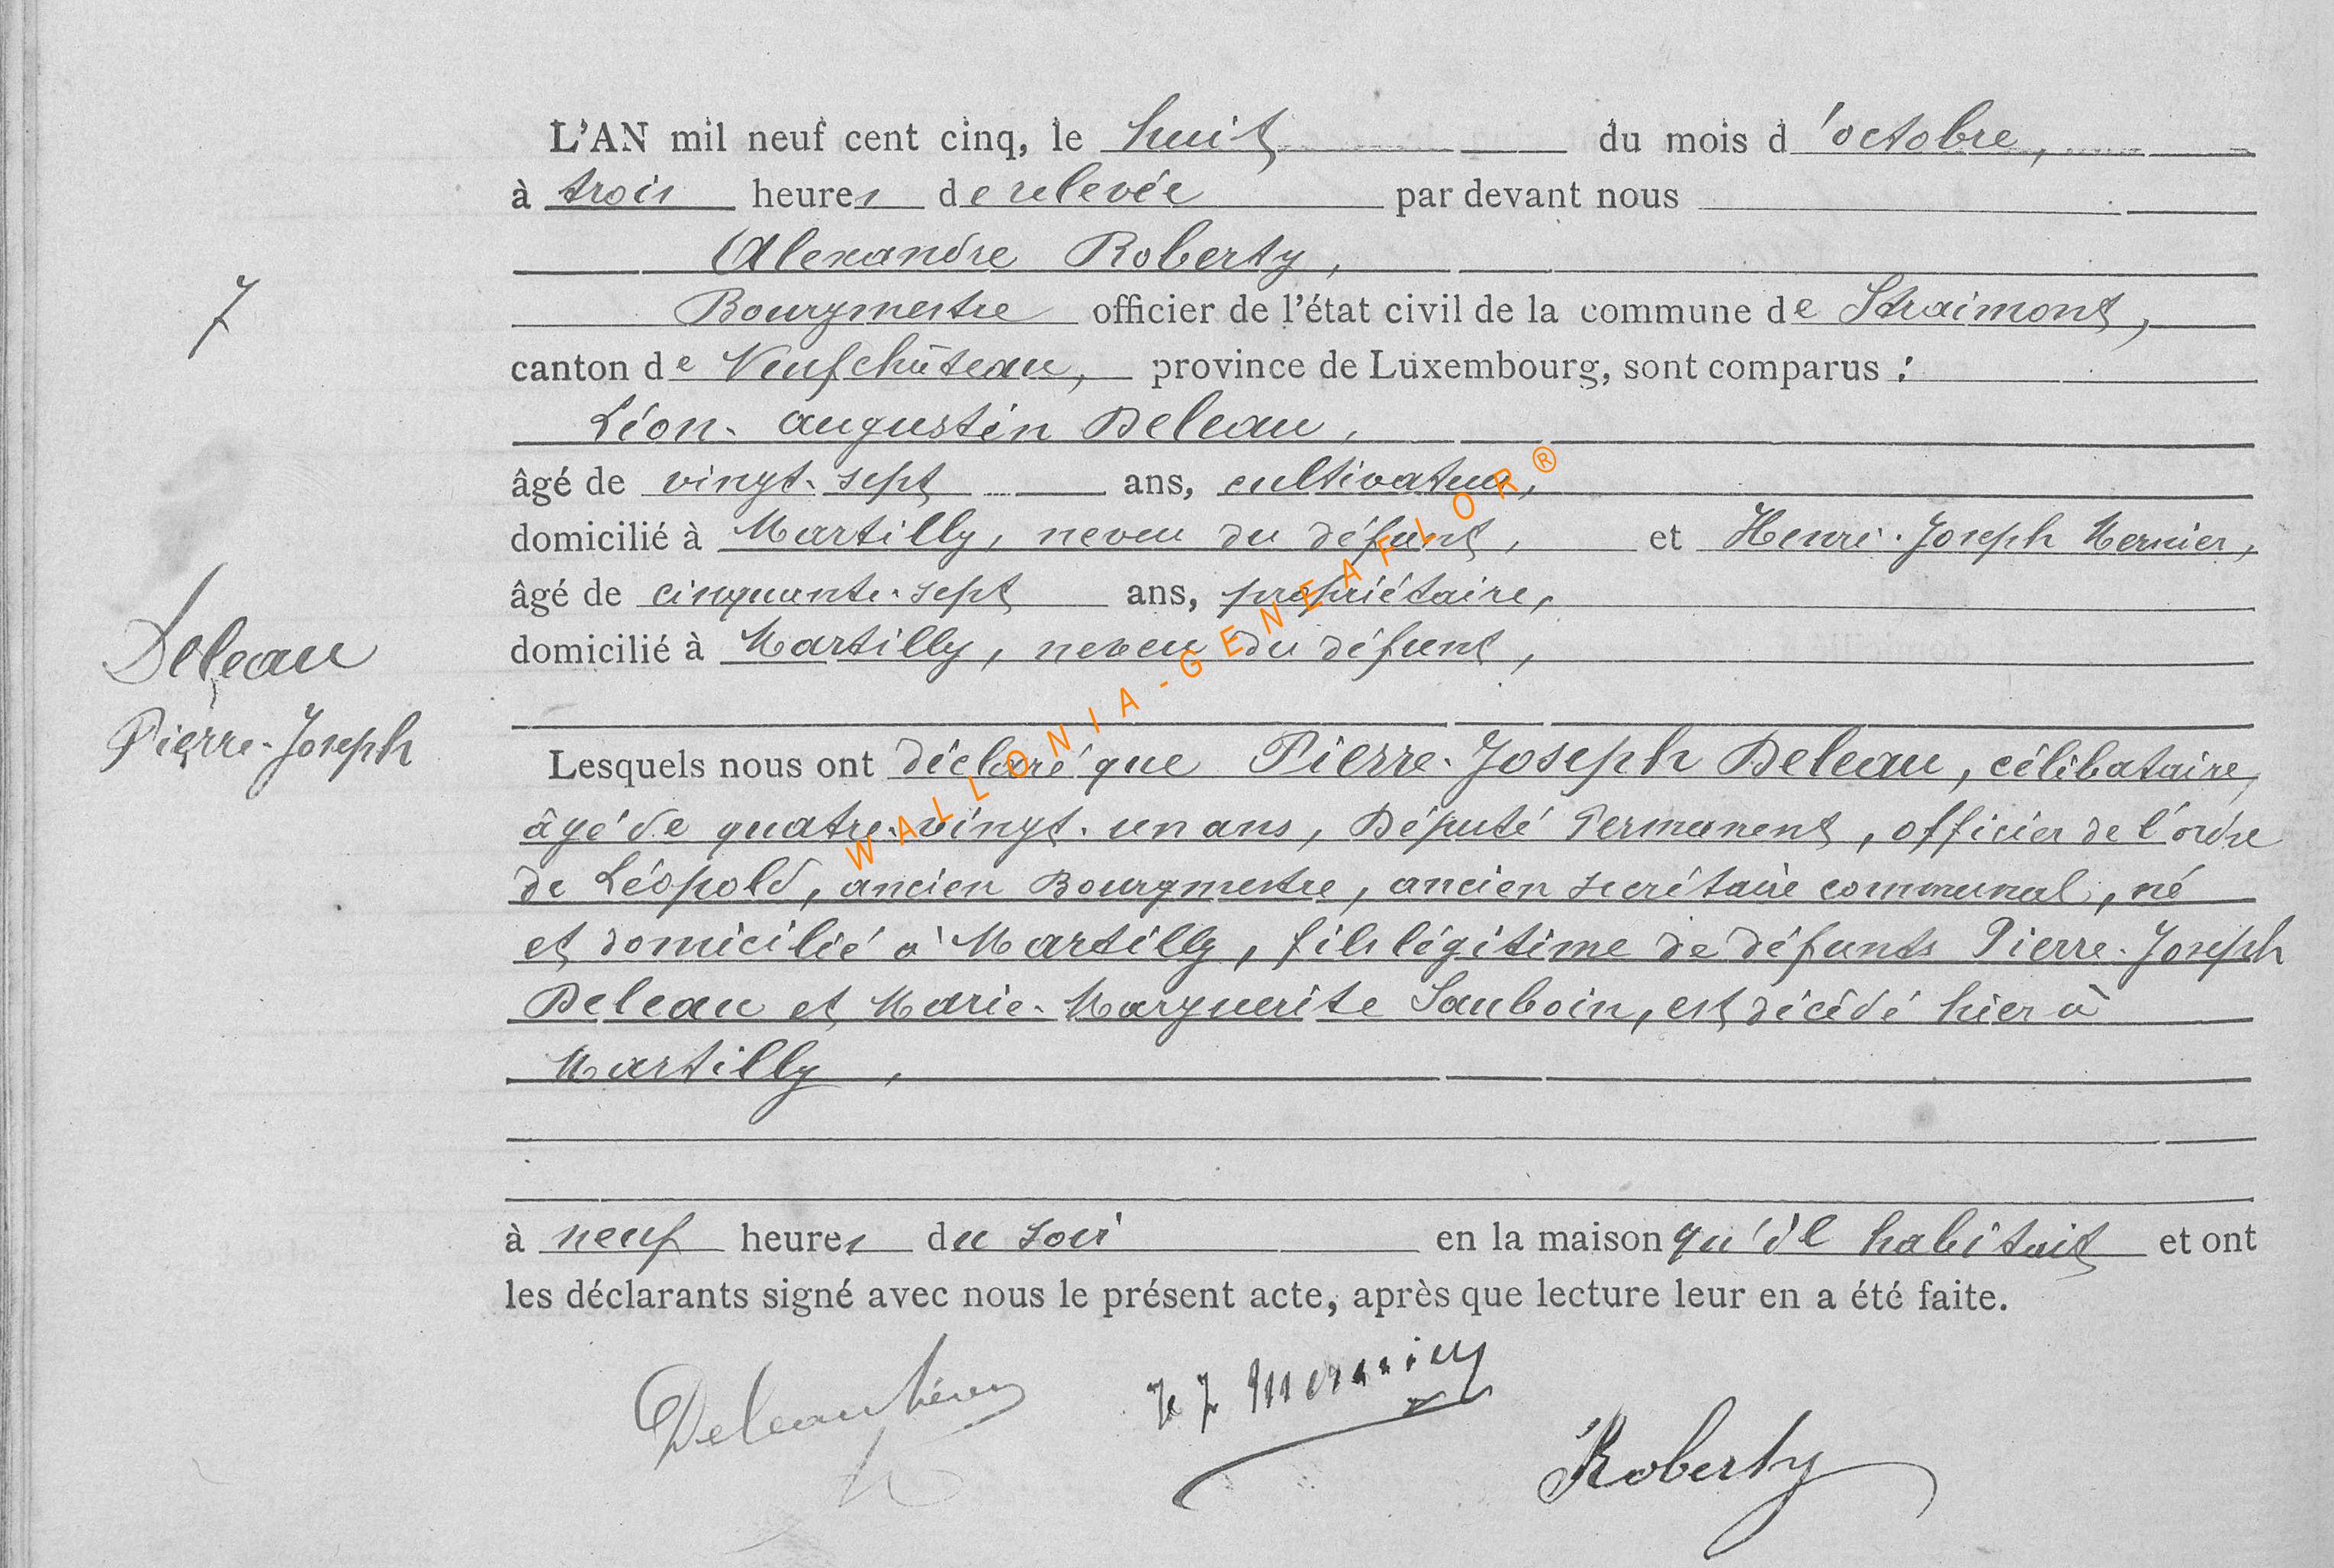 L'AN mil neuf cent cinq, le huit du mois d'octobre,
à trois heures de relevée par devant nous
Alexandre Roberty,
7
Bourgmestre officier de l'état civil de la commune de Straimont,
canton de Neufchâteau, province de Luxembourg, sont comparus :
Léon-Augustin Deleau,
âgé de vingt-sept ans, cultivateur,
domicilié à Martilly, neveu du défunt, et Henri-Joseph Mernier,
âgé de cinquante-sept ans, propriétaire,
domicilié à Martilly, neveu du défunt,
Deleau
Pierre-Joseph
Lesquels nous ont déclaré que Pierre-Joseph Deleau, célibataire,
âgé de quatre-vingt-un ans, Député Permanent, officier de l'ordre
de Léopold, ancien Bourgmestre, ancien secrétaire communal, né
et domicilié à Martilly, fils légitime de défunts Pierre-Joseph
Deleau et Marie-Marguerite Sauboin, est décédé hier à
Martilly,
à neuf heures du soir en la maison qu'il habitait et ont
les déclarants signé avec nous le présent acte, après que lecture leur en a été faite.
Deleau
H J Mernier
Roberty
WALLONIA-GENEAFLOR®